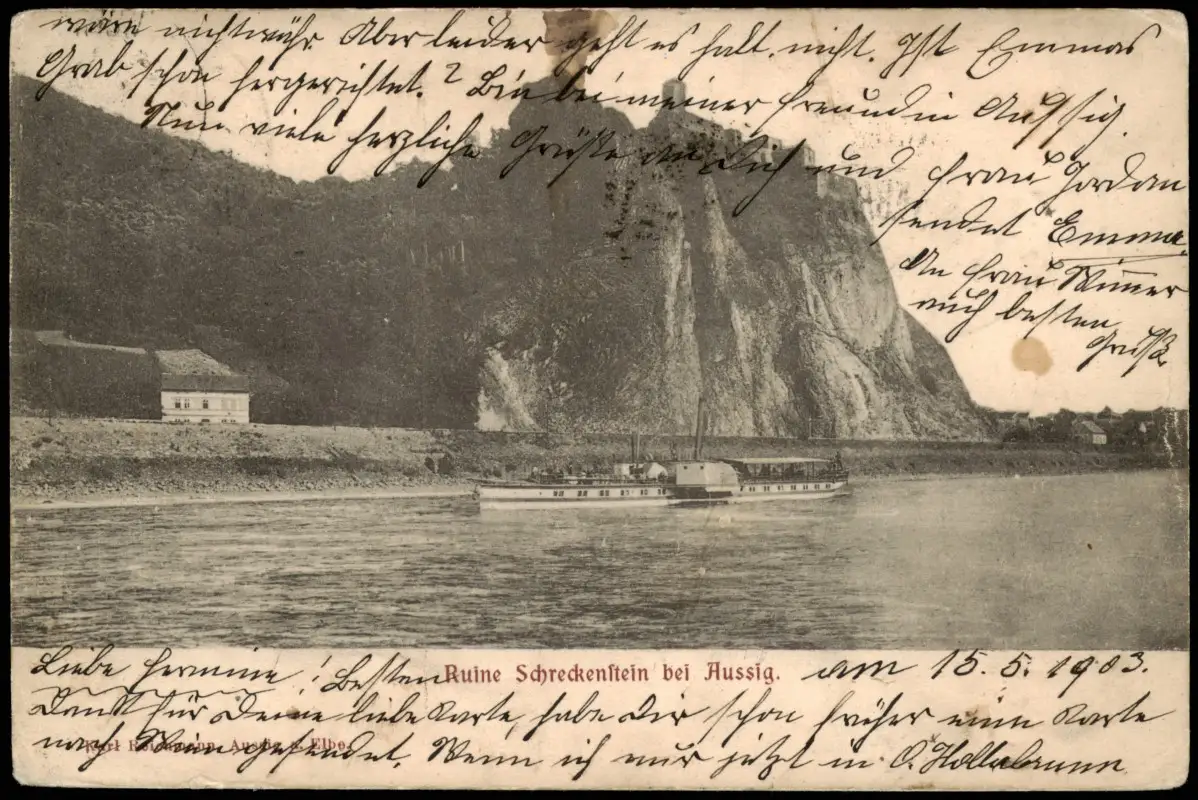 Liebe Hermine! Besten
Ruine Schreckenstein bei Aussig.
am 15.5.1903.
Dank für Deine liebe Karte, habe Dir schon früher eine Karte
nach Wien gesendet. Wenn ich nur jetzt in O. Hollabrunn
Karl Aussig a. Elbe.
wäre nicht wahr. Aber leider geht es halt nicht. Ist Emmas
Grab schon hergerichtet? Bin bei meiner Freundin Aussig.
Nun viele herzliche Grüße an Dich und Frau Jordan
sendet Emma.
An Frau Wimmer
auch besten
Gruß